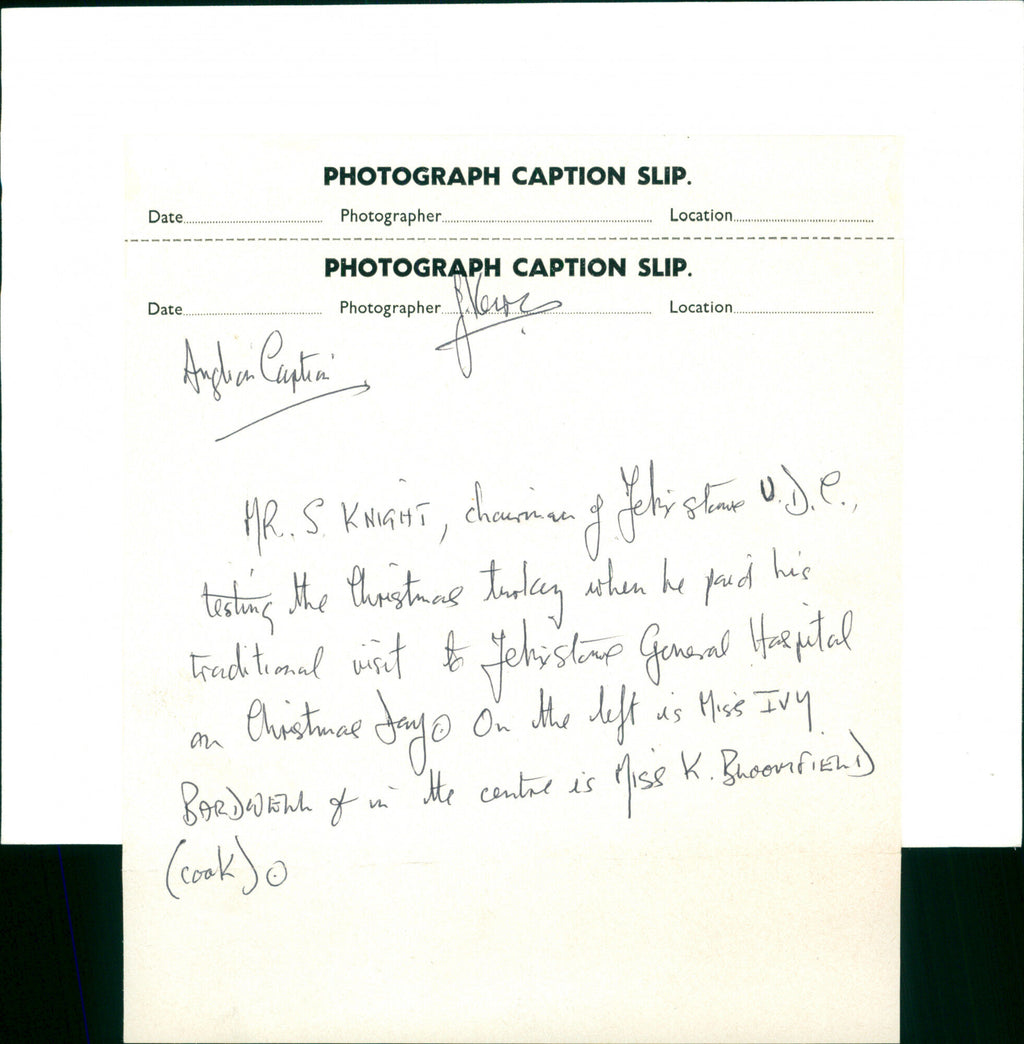 PHOTOGRAPH CAPTION SLIP.
Date Photographer Location
PHOTOGRAPH CAPTION SLIP.
Date Photographer Location
Anglian Caption
MR. S. KNIGHT, chairman of Felixstowe U.D.C.,
testing the Christmas turkey when he paid his
traditional visit to Felixstowe General Hospital
on Christmas Day. On the left is Miss IVY
BARDWELL & in the centre is Miss K. BLOOMFIELD
(cook).